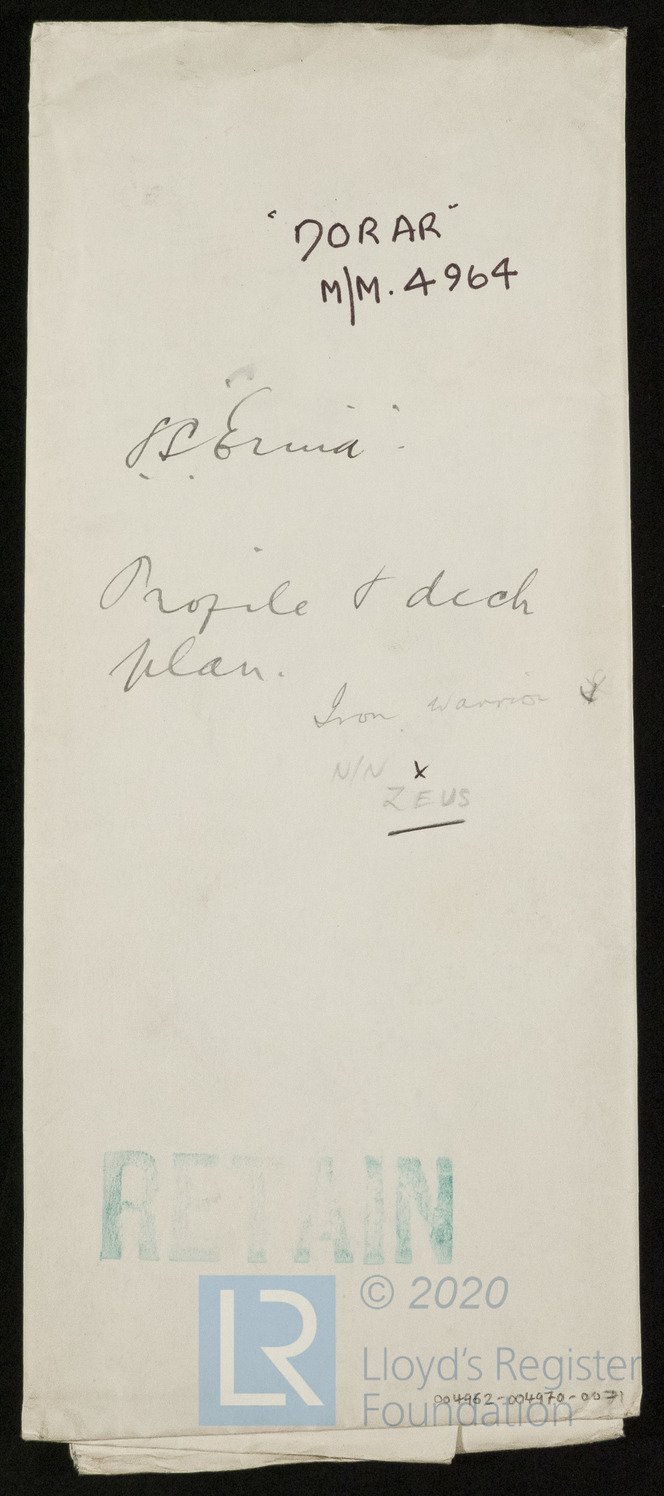 "DORAR"
M/M. 4964
SS "Ermia".
Profile & deck
plan.
Iron Warrior
N/N x
ZEUS
RETAIN
LR
© 2020
Lloyd's Register
Foundation
004962-004970-0071